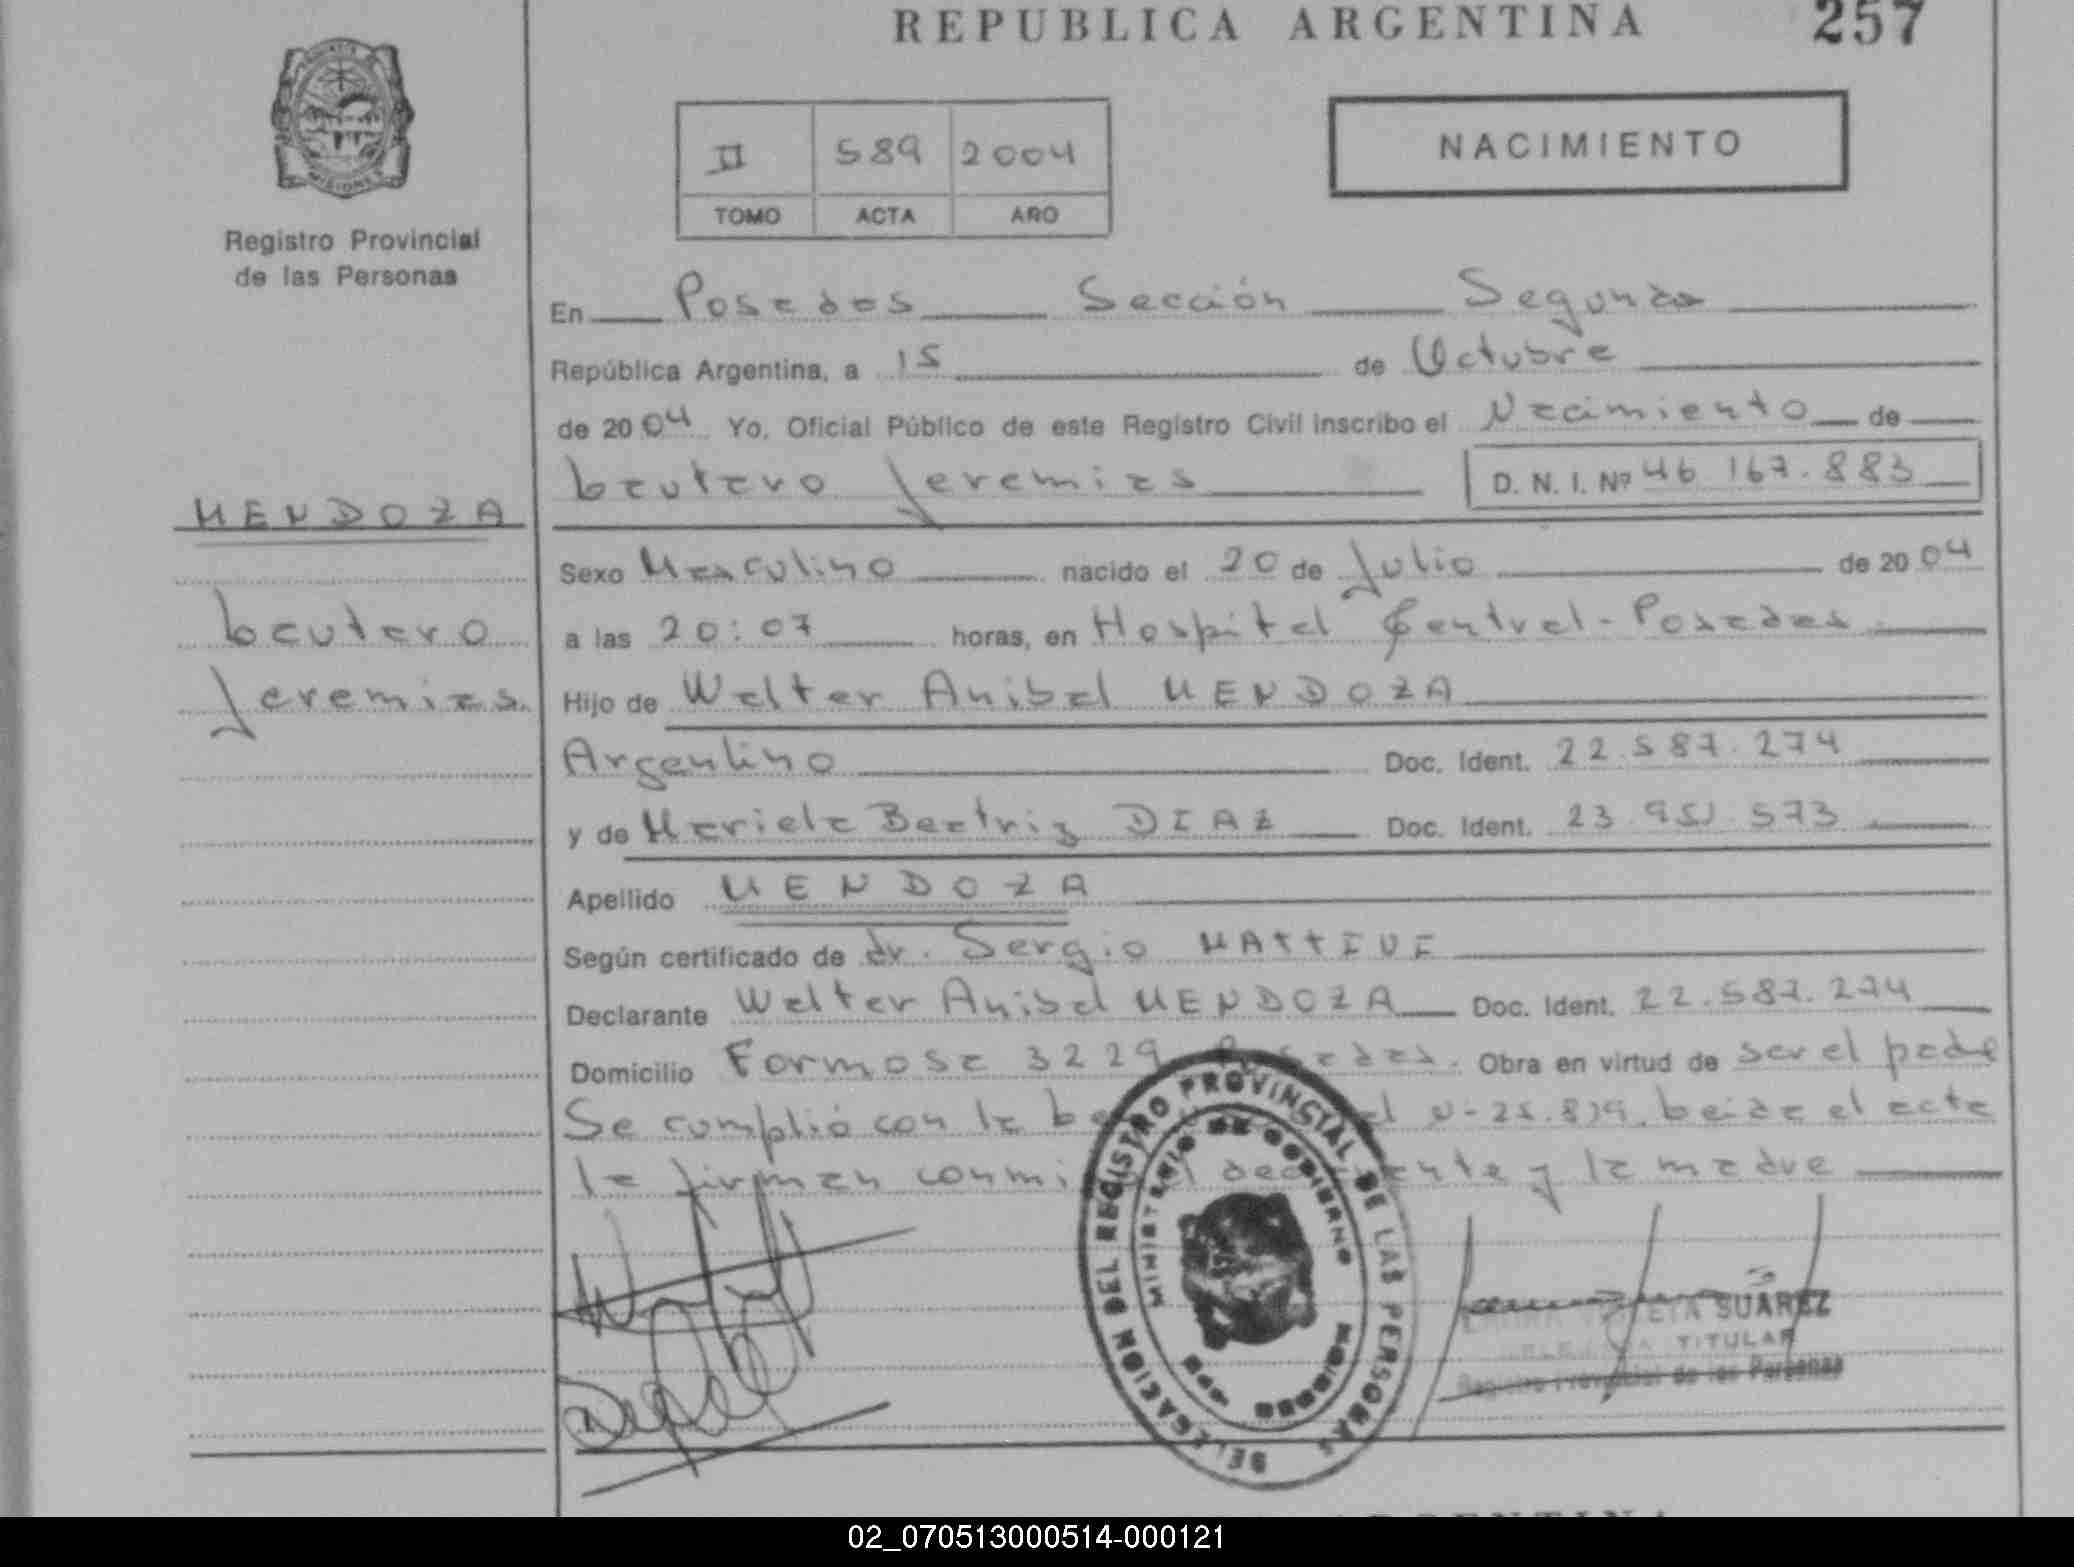 REPUBLICA ARGENTINA
257
MISIONES
Registro Provincial
de las Personas
II 589 2004
TOMO ACTA AÑO
NACIMIENTO
En Posadas Sección Segunda
República Argentina, a 15 de Octubre
de 2004 Yo, Oficial Público de este Registro Civil inscribo el Nacimiento de
Lautaro Jeremias D. N. I. Nº 46.167.883
MENDOZA
Lautaro
Jeremias.
Sexo Masculino nacido el 20 de Julio de 2004
a las 20:07 horas, en Hospital Central - Posadas
Hijo de Walter Anibal MENDOZA
Argentino Doc. Ident. 22.587.274
y de Mariela Beatriz DIAZ Doc. Ident. 23.951.573
Apellido MENDOZA
Según certificado de dr. Sergio
Declarante Walter Anibal MENDOZA Doc. Ident. 22.587.274
Domicilio Formosa 3229 Posadas. Obra en virtud de ser el padre
Se cumplió con la Nº 25.819. Leida el acta
la firman conmigo el declarante y la madre
DELEGACION DEL REGISTRO PROVINCIAL DE LAS PERSONAS
MINISTERIO DE GOBIERNO
SUAREZ
TITULAR
Registro Provincial de las Personas
ARGENTINA
02_070513000514-000121